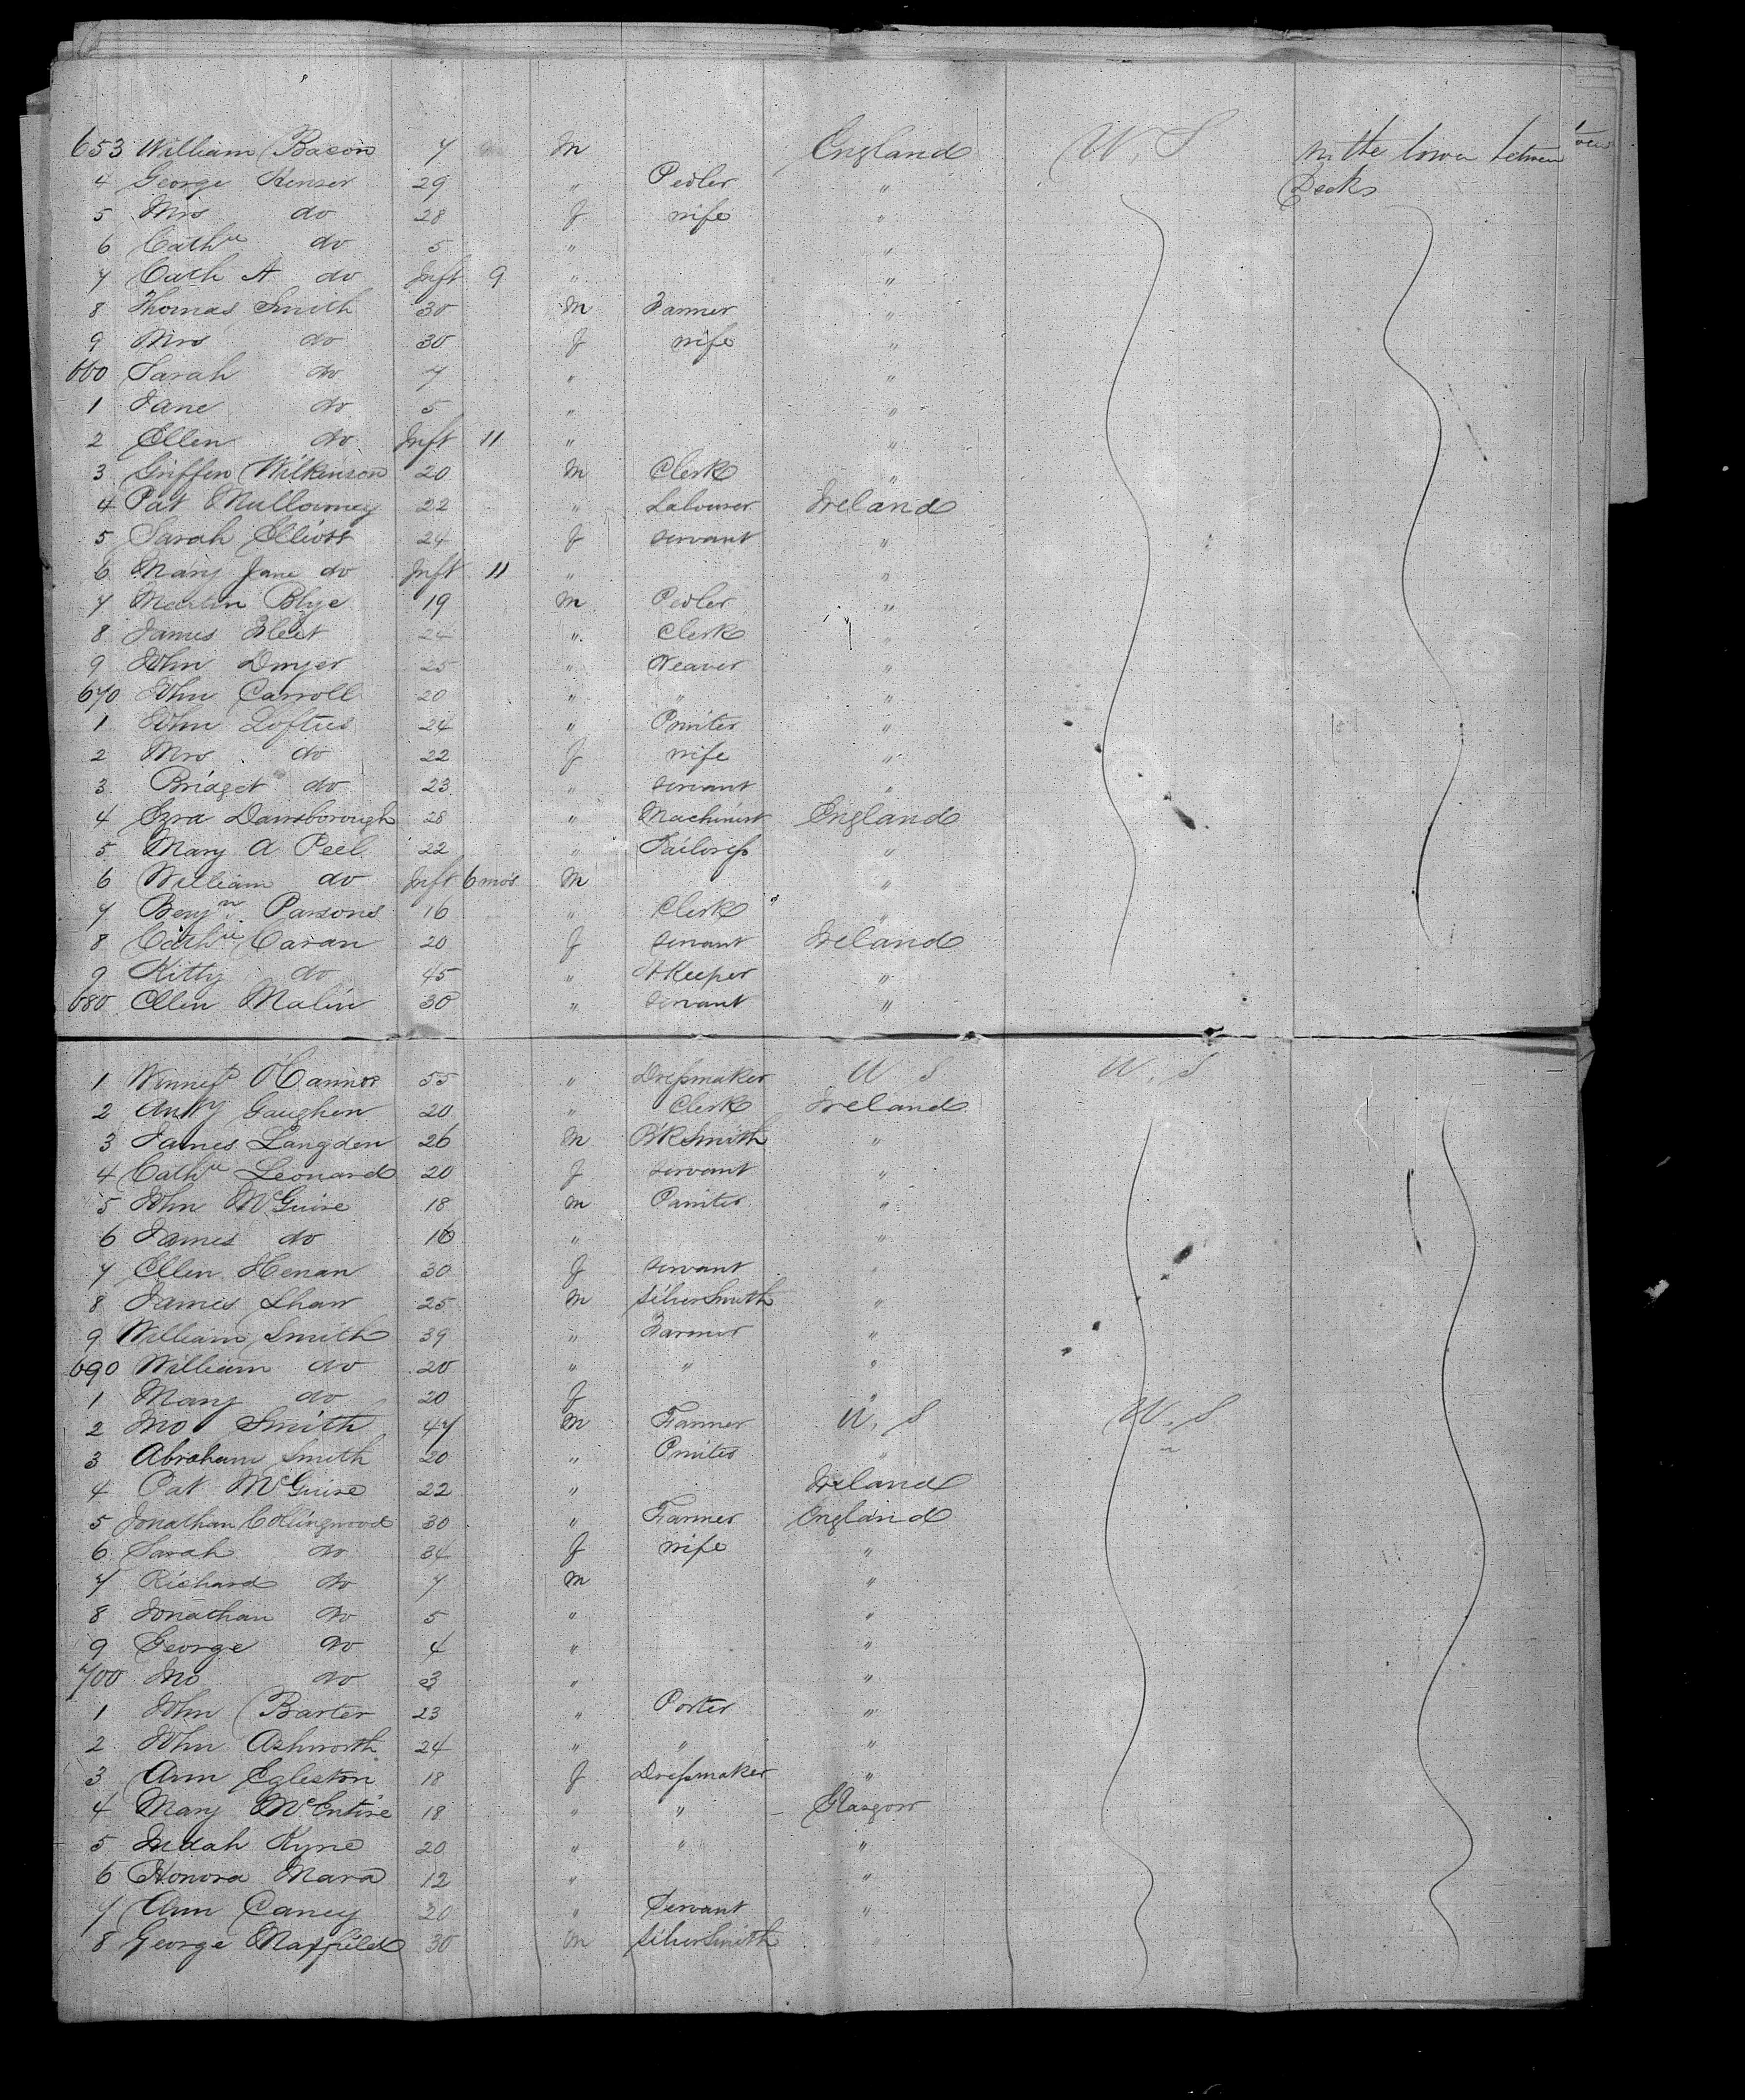 653 William Bacon 7 M England U. S in the lower between
Decks
4 George Kenser 29 " Pedler "
5 Mrs do 28 f wife "
6 Cathe do 5 " "
7 Cath A do Inft 9 " "
8 Thomas Smith 30 M Farmer "
9 Mrs do 30 f wife "
660 Sarah do 7 " "
1 Jane do 5 " "
2 Ellen do Inft 11 " "
3 Griffen Wilkinson 20 M Clerk "
4 Pat Mullowney 22 " Labourer Ireland
5 Sarah Elliott 24 f servant "
6 Mary Jane do Inft 11 " "
7 Martin Blye 19 M Pedler "
8 James Fleet 24 " Clerk "
9 John Dwyer 25 " Weaver "
670 John Carroll 20 " " "
1 John Loftus 24 " Printer "
2 Mrs do 22 f wife "
3 Bridget do 23 " servant "
4 Ezra Dansborough 28 " Machinist England
5 Mary A Peel 22 " Tailoress "
6 William do Inft 6 mos M "
7 Benjn Parsons 16 " Clerk "
8 Cathe Caran 20 f servant Ireland
9 Kitty do 45 " HKeeper "
680 Ellen Malin 30 " servant "
1 Winnefd O'Connor 55 " Dressmaker U. S U. S
2 Anty Gaughen 20 " Clerk Ireland
3 James Langden 26 M B'KSmith "
4 Cathe Leonard 20 f servant "
5 John McGuire 18 M Painter "
6 James do 16 " "
7 Ellen Henan 30 f servant "
8 James Shaw 25 M SilverSmith "
9 William Smith 39 " Farmer "
690 William do 20 " " "
1 Mary do 20 f "
2 Jno Smith 47 M Farmer U. S U. S
3 Abraham Smith 20 " Printer " "
4 Pat McGuire 22 " Ireland
5 Jonathan Collingwood 30 " Farmer England
6 Sarah do 34 f wife "
7 Richard do 7 M "
8 Jonathan do 5 " "
9 George do 4 " "
700 Jno do 3 " "
1 John Barter 23 " Porter "
2 John Ashworth 24 " " "
3 Ann Egleston 18 f Dressmaker "
4 Mary McEntire 18 " " Glasgow
5 Judah Kyne 20 " " "
6 Honora Mara 12 " "
7 Ann Caney 20 " Servant "
8 George Maxfield 30 M SilverSmith "